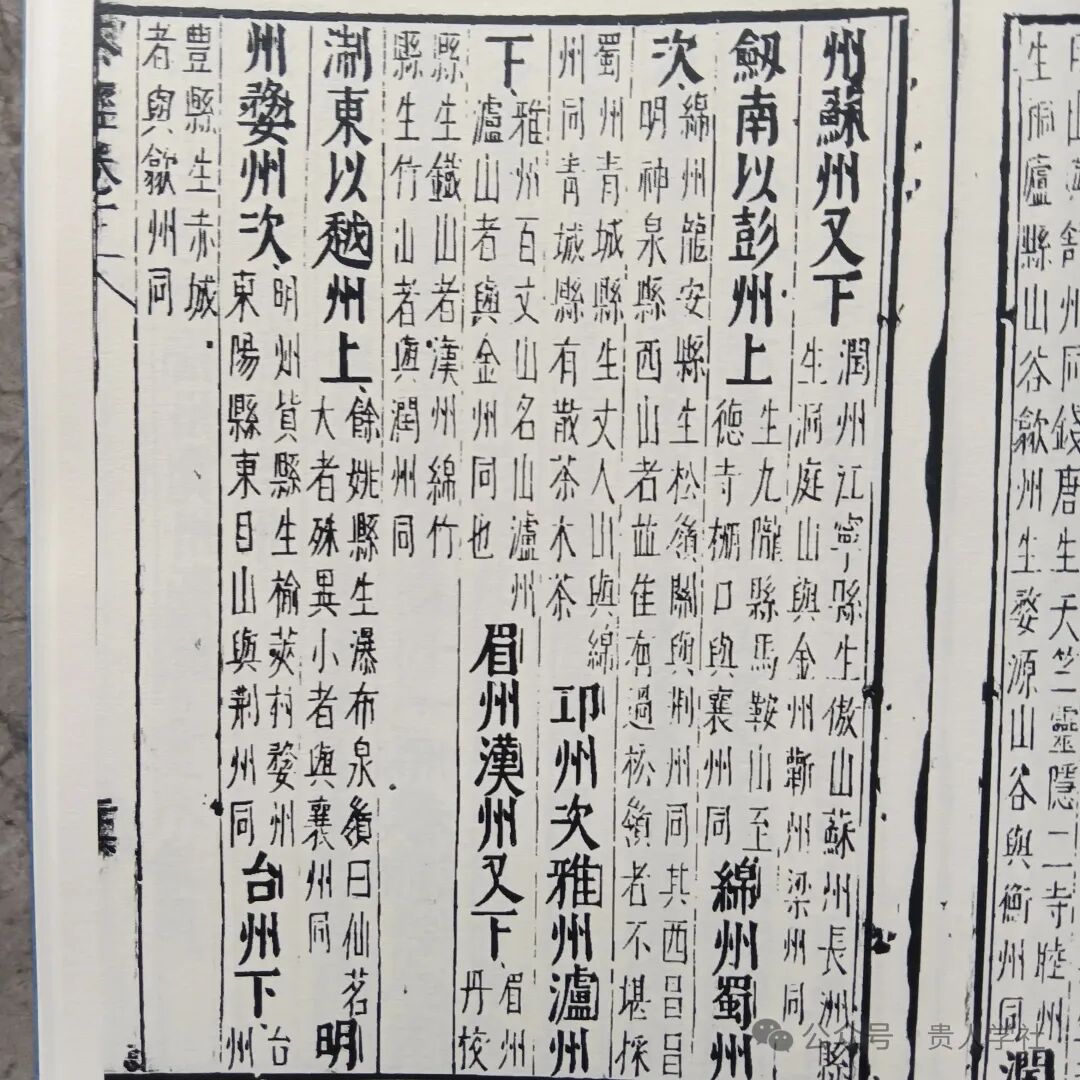 舒州同錢唐生天竺靈隱二寺睦州
生桐廬縣山谷歙州生婺源山谷與衡州同
潤
州蘇州又下
潤州江寧縣生傲山蘇州長洲縣
生洞庭山與金州蘄州梁州同
劔南以彭州上
生九隴縣馬鞍山至
德寺棚口與襄州同
綿州蜀州
次
綿州龍安縣生松嶺關與荆州同其西昌昌
明神泉縣西山者並佳有過松嶺者不堪採
蜀州青城縣生丈人山與綿
州同青城縣有散茶木茶
邛州次雅州瀘州
下
雅州百丈山名山瀘州
瀘山者與金州同也
眉州漢州又下
眉州
丹校
縣生鐵山者漢州綿竹
縣生竹山者與潤州同
淛東以越州上
餘姚縣生瀑布泉嶺曰仙茗
大者殊異小者與襄州同
明
州婺州次
明州貨縣生榆莢村婺州
東陽縣東目山與荆州同
台州下
台
州
豐縣生赤城
者與歙州同
公众号 · 贵人学社